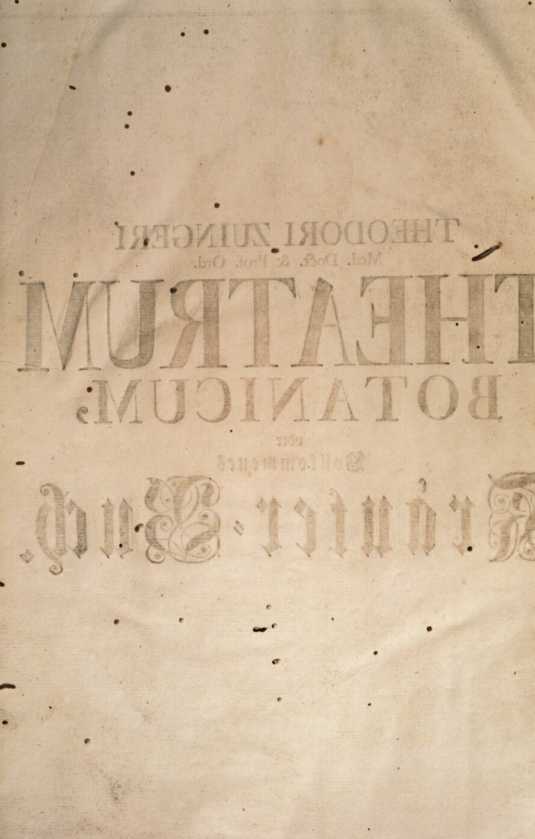 THEODORI ZUINGERI
Med. Doct. & Prof. Ord.
THEATRUM
BOTANICUM,
oder
Vollkommenes
Kräuter-Buch.